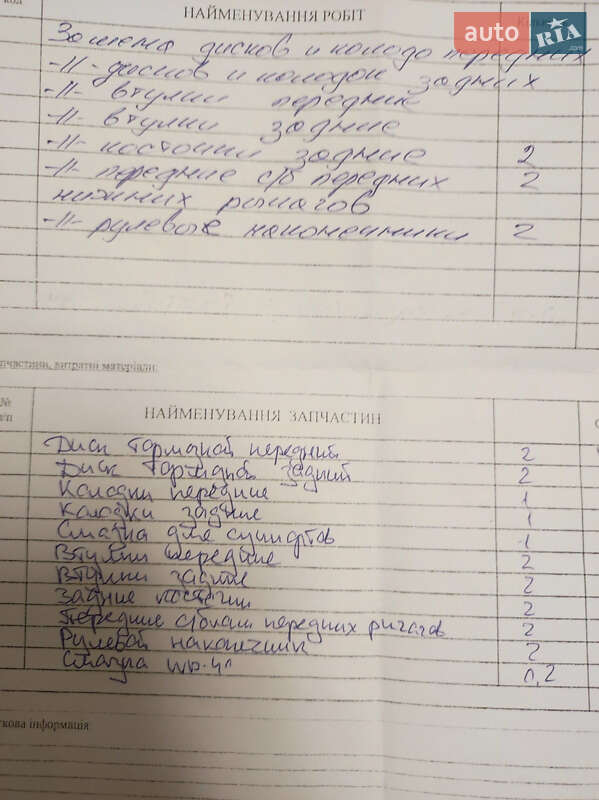 НАЙМЕНУВАННЯ РОБІТ
auto RIA
.com
Замена дисков и колодо передних
-//- дисков и колодок задних
-//- втулки передник
-//- втулки задние
-//- косточки задние 2
-//- передние с/б передних 2
нижних рычагов
-//- рулевые наконечники 2
пчастини, витратні матеріали:
№
п/п
НАЙМЕНУВАННЯ ЗАПЧАСТИН
Диск тормазной передний 2
Диск тормазной задний 2
Колодки передние 1
Колодки задние 1
Смазка для суппортов 1
Втулки передние 2
Втулки задние 2
Задние косточки 2
Передние с/блоки передних рычагов 2
Рулевой наконечник 2
Смазка WD-40 0,2
кова інформація